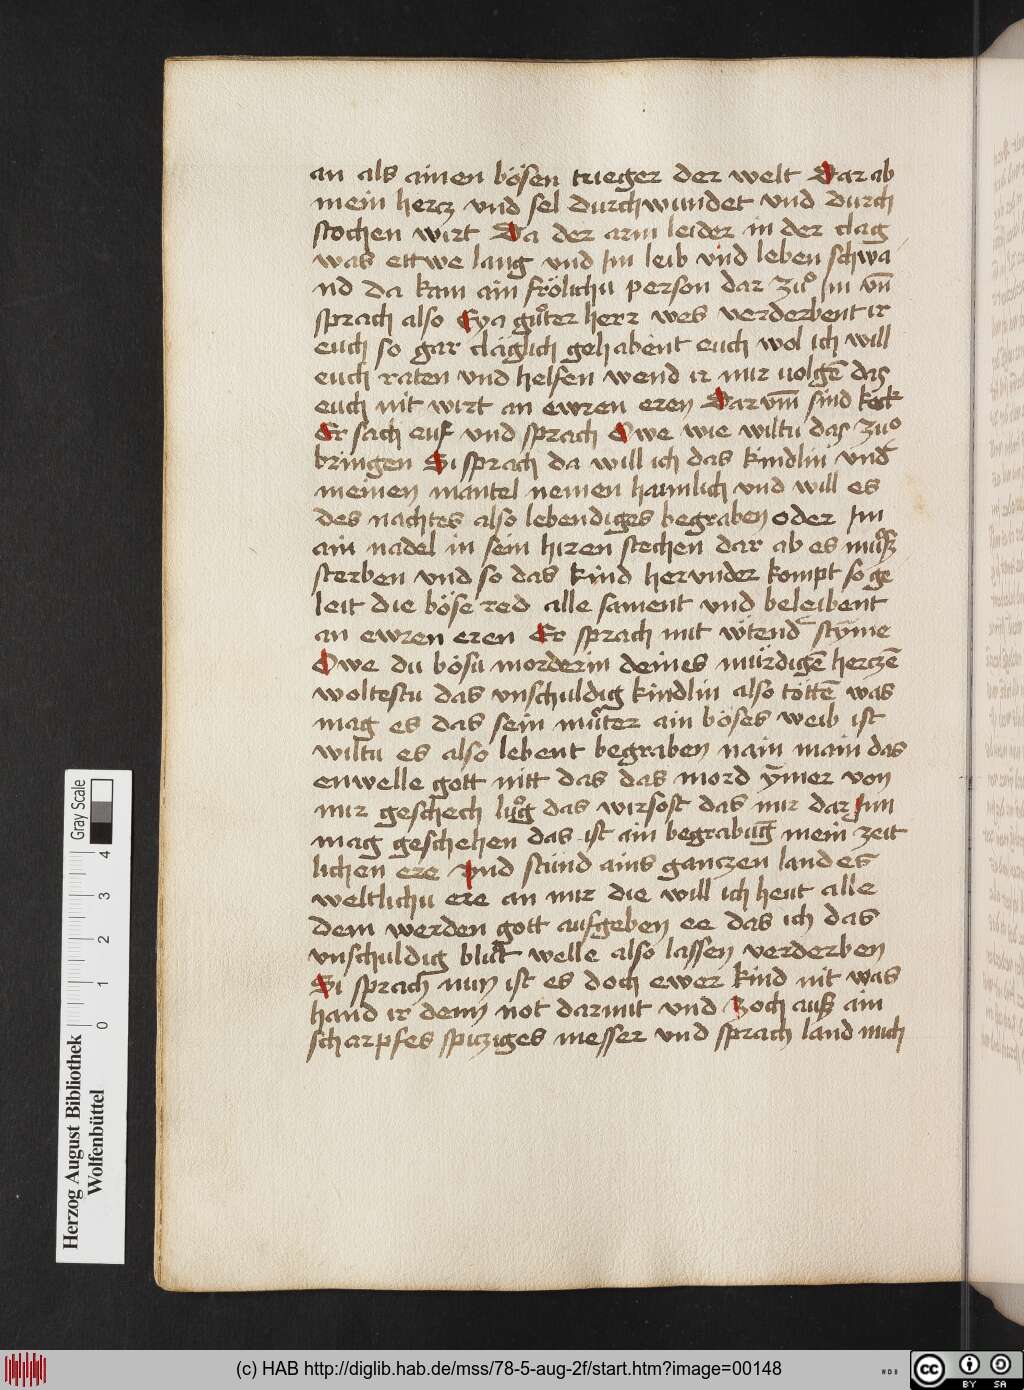 an als ainen bösen trieger der welt Dar ab
mein hercz vnd sel durchwundet vnd durch
stochen wirt Da der arm leider in der clag
was ettwe lang vnd Im leib vnd leben schwa
nd da kam ain frölichu person dar zuͦ Im vn̄
sprach also Eya guͦter herr wes verderbent ir
euch so gar cläglich gehabent euch wol ich will
euch raten vnd helfen wend ir mir uolgē das
euch nit wirt an ewren eren Dar vm̄ sind keck
Er sach auf vnd sprach Owe wie wiltu das zuͦ
bringen Si sprach da will ich das kindlin vnd̄
meinen mantel nemen haimlich vnd will es
des nachtes also lebendiges begraben oder Im
ain nadel in sein hiren stechen dar ab es muͦsz
sterben vnd so das kind hervnder kompt so ge
leit die böse red alle sament vnd beleibent
an ewren eren Er sprach mit wtend̄ stӯme
Owe du bösu morderin deines mürdigē herczē
woltestu das vnschuldig kindlin also töttē was
mag es das sein muͦter ain böses weib ist
wiltu es also lebent begraben nain nain das
enwelle gott nitt das das mord ӯmer von
mir geschech luͦg das wirsost das mir dar Inn
mag geschehen das ist ain begrabūg mein zeit
lichen ere Vnd stünd ains ganczen landes
weltlichu ere an mir die will ich heut alle
dem werden gott aufgeben ee das ich das
vnschuldig bluͦt welle also lassen verderben
Si sprach nun ist es doch ewer kind nit was
hand ir denn not darmit vnd zoch ausz ain
scharpfes spicziges messer vnd sprach land mich
Gray Scale
0 1 2 3 4
Herzog August Bibliothek
Wolfenbüttel
(c) HAB http://diglib.hab.de/mss/78-5-aug-2f/start.htm?image=00148
cc BY SA